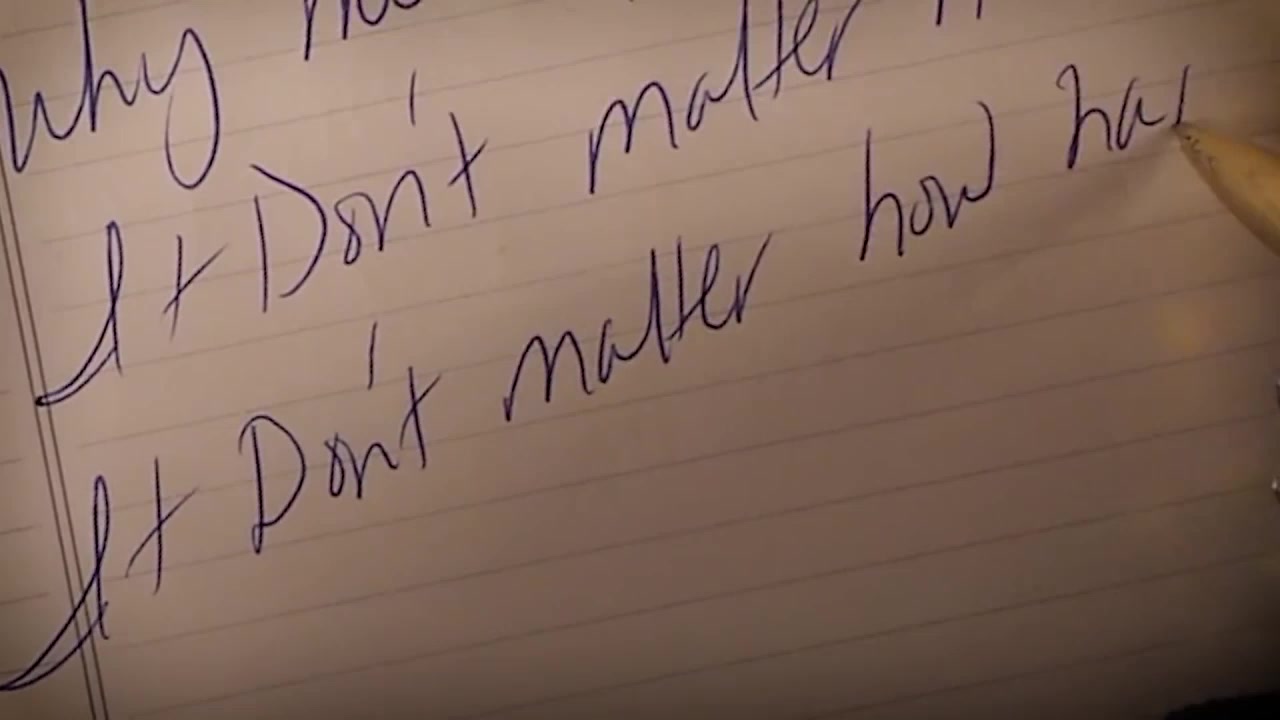 Why
It Don't matter
It Don't matter how ha